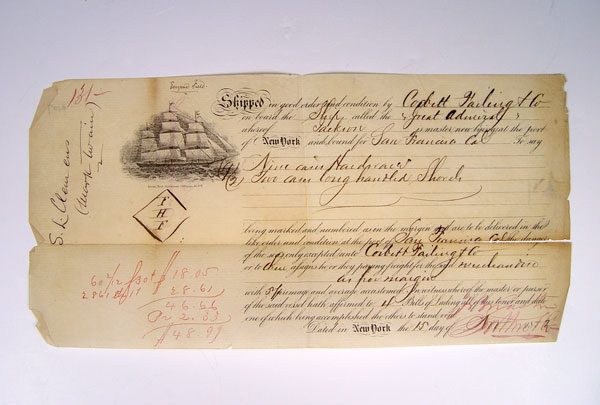 131-
Eugene Field
S. L. Clemens
(Mark Twain)
Shipped in good order and condition by Corbett Failing & Co
on board the Ship called the Great Admiral
whereof Jackson is master now lying at the port
of New York and bound for San Francisco Cal To say
Nine Hardware
Two long handled Shovels
F
H
F
being marked and numbered as in the margin & are to be delivered in the
like order and condition at the port of San Francisco Cal the danger
of the seas only excepted, unto Corbett Failing & Co
or to assigns he or they paying freight for the said merchandise
as per margin
with 5% primage and average accustomed. In witness whereof the master or purser
of the said vessel hath affirmed to 4 Bills of Lading all of this tenor and date
one of which being accomplished the others to stand void
Dated in New York the 15 day of
18.05
28.61
46.66
Pr 2.33
$48.99